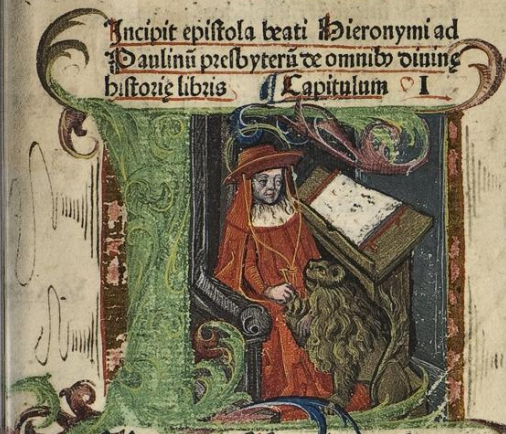 Incipit epistola beati Hieronymi ad
Paulinū presbyterū de omnibꝰ diuinę
historię libris Capitulum I